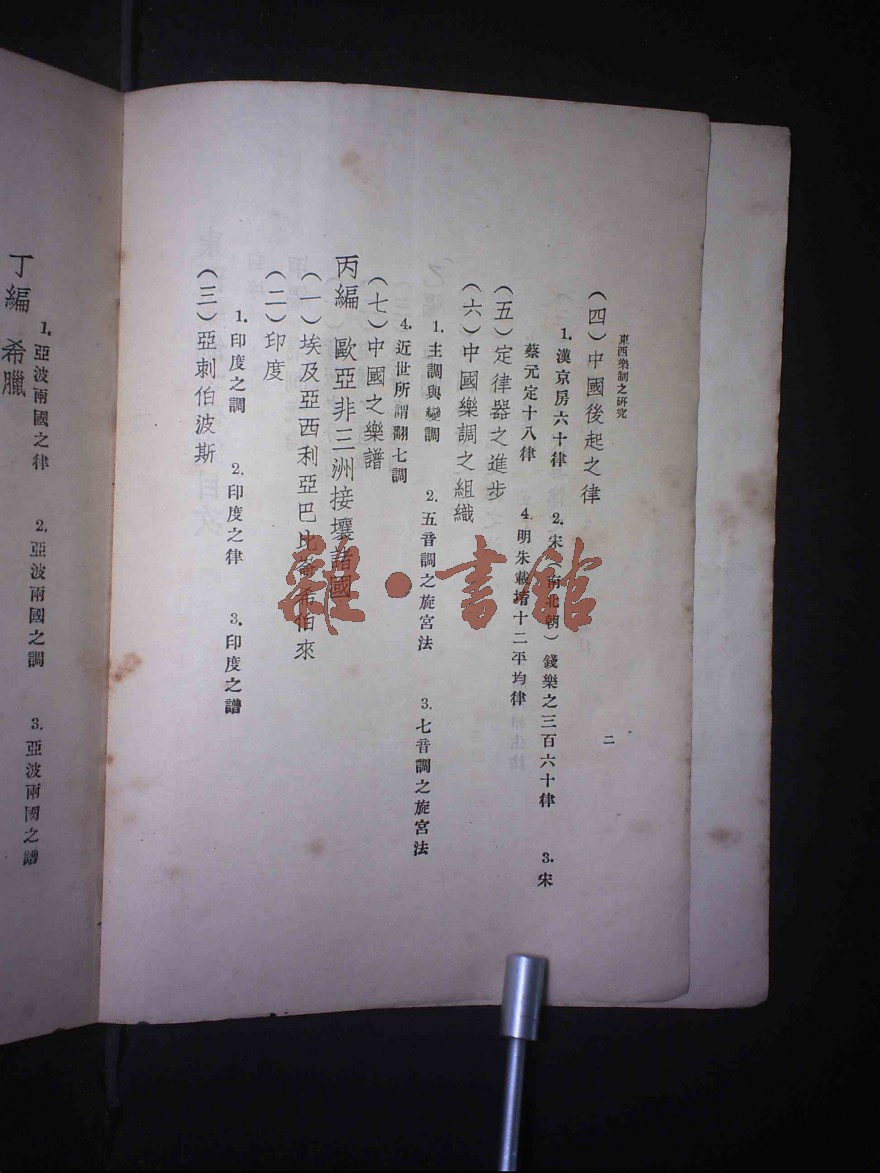 東西樂制之研究
二
(四)中國後起之律
1. 漢京房六十律 2. 宋(南北朝)錢樂之三百六十律 3. 宋
蔡元定十八律 4. 明朱載堉十二平均律
(五)定律器之進步
(六)中國樂調之組織
1. 主調與變調 2. 五音調之旋宮法 3. 七音調之旋宮法
4. 近世所謂翻七調
(七)中國之樂譜
丙編 歐亞非三洲接壤諸國
(一)埃及亞西利亞巴比崙希伯來
(二)印度
1. 印度之調 2. 印度之律 3. 印度之譜
(三)亞剌伯波斯
1. 亞波兩國之律 2. 亞波兩國之調 3. 亞波兩國之譜
丁編 希臘
雜·書館